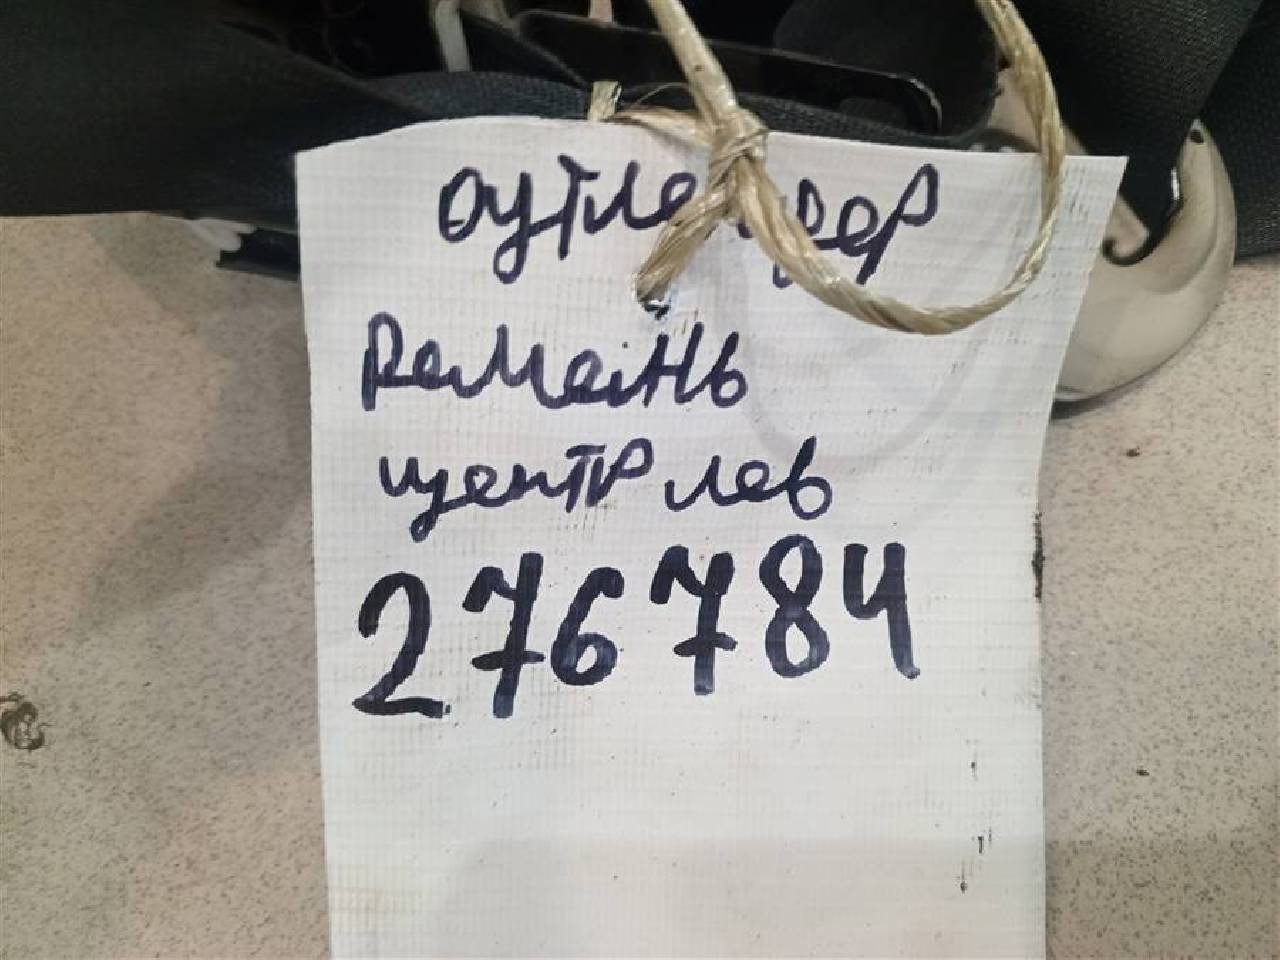 Ремень
центр лев
276784